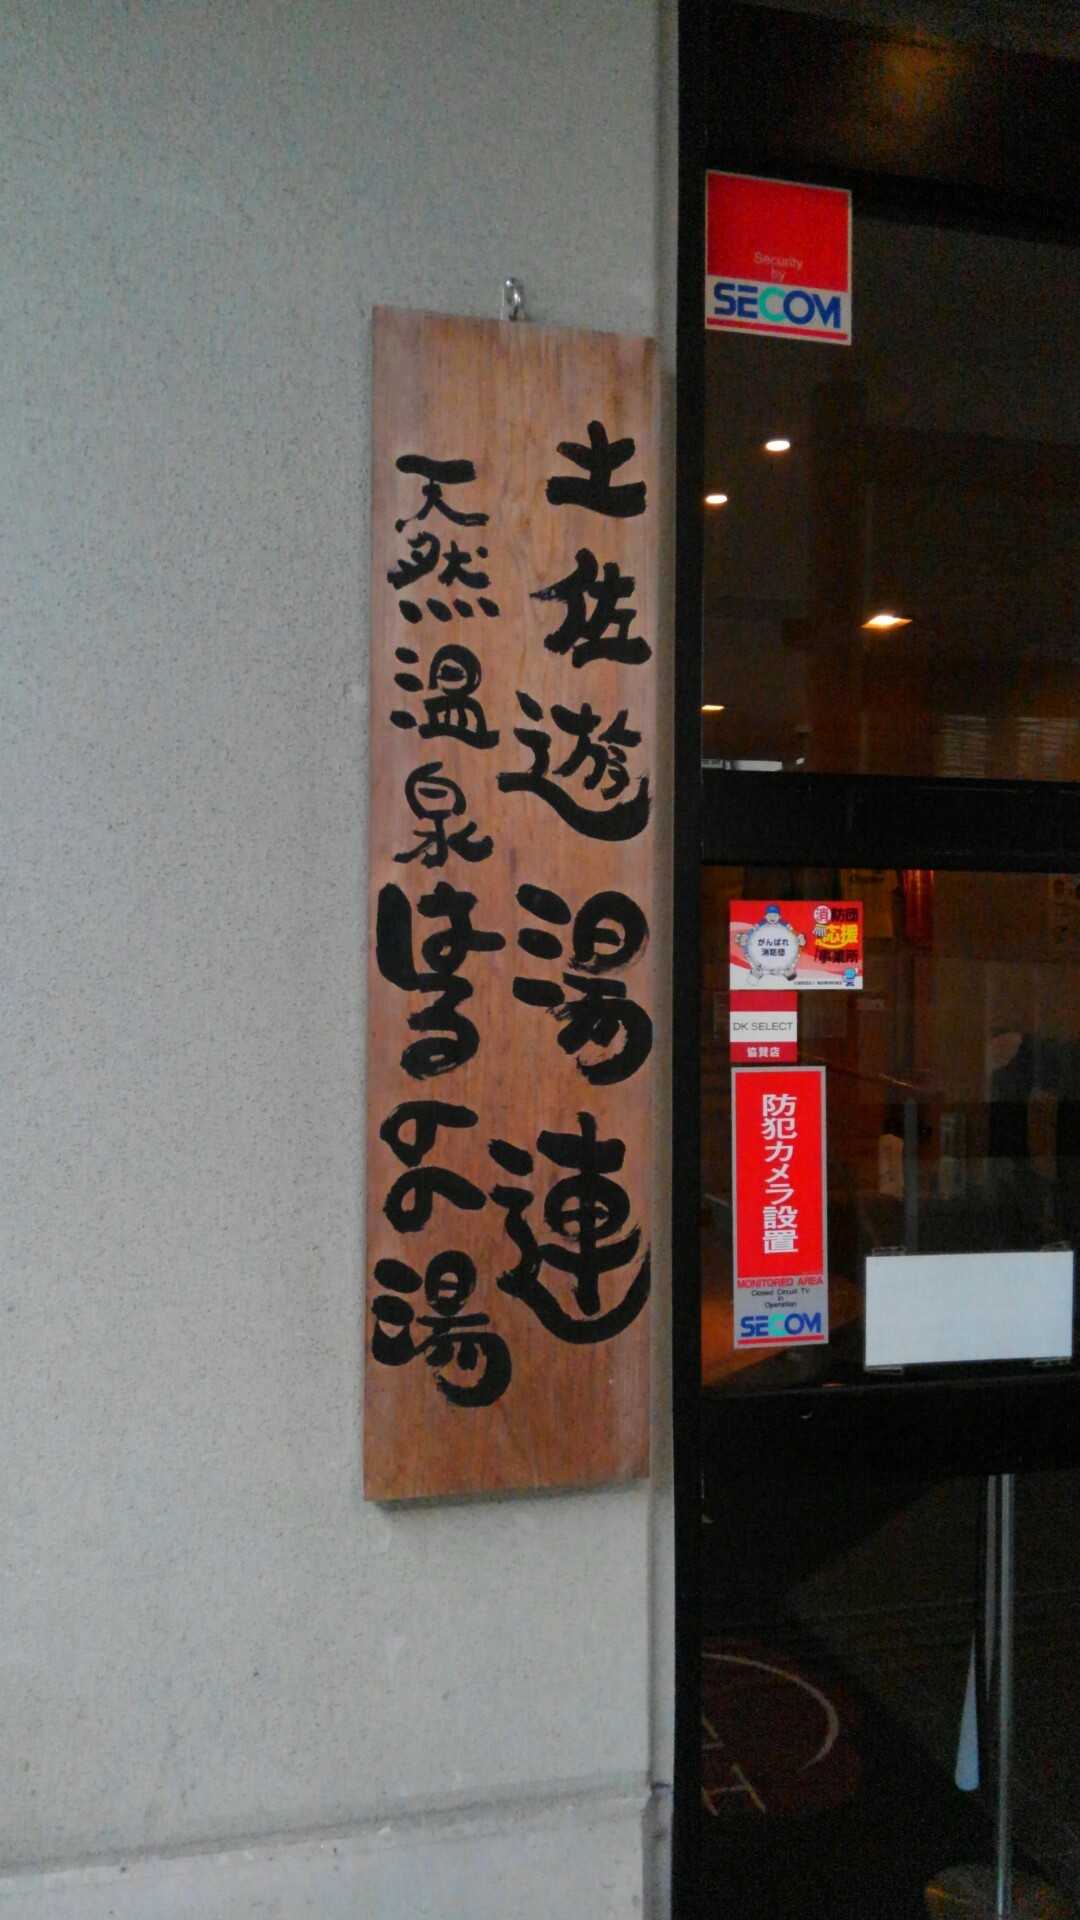 土佐遊湯連
天然温泉はるのの湯
Security
by
SECOM
がんばれ
消防団
消防団
応援
事業所
DK SELECT
協賛店
防犯カメラ設置
MONITORED AREA
Closed Circuit TV
in
Operation
SECOM